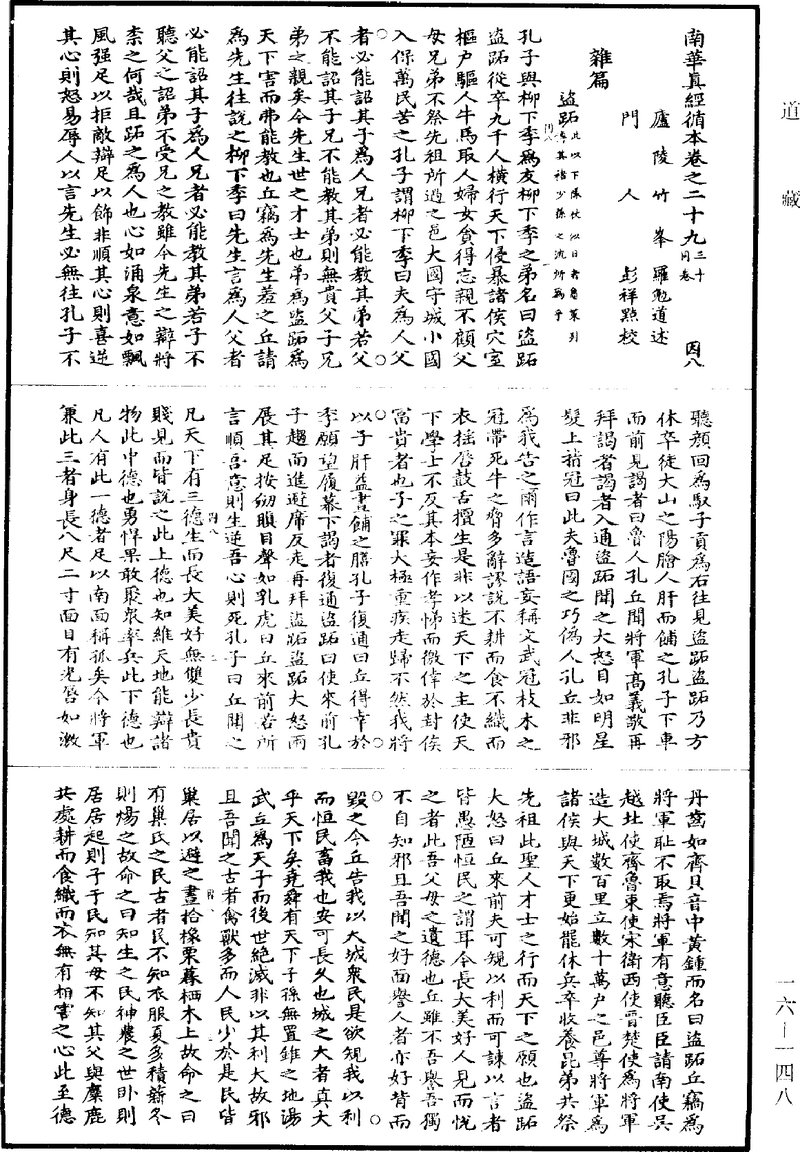 道藏
南華真經循本卷之二十九三十同卷 因八
廬陵竹峯羅勉道述
門人彭祥點校
雜篇
盜跖
孔子與柳下季為友柳下季之弟名曰盜跖
盜跖從卒九千人橫行天下侵暴諸侯穴室
樞戶驅人牛馬取人婦女貪得忘親不顧父
母兄弟不祭先祖所過之邑大國守城小國
入保萬民苦之孔子謂柳下季曰夫為人父
者必能詔其子為人兄者必能教其弟若父
不能詔其子兄不能教其弟則無貴父子兄
弟之親矣今先生世之才士也弟為盜跖為
天下害而弗能教也丘竊為先生羞之丘請
為先生往說之柳下季曰先生言為人父者
必能詔其子為人兄者必能教其弟若子不
聽父之詔弟不受兄之教雖今先生之辯將
柰之何哉且跖之為人也心如涌泉意如飄
風强足以拒敵辯足以飾非順其心則喜逆
其心則怒易辱人以言先生必無往孔子不
聽顏回為馭子貢為右往見盜跖盜跖乃方
休卒徒大山之陽膾人肝而餔之孔子下車
而前見謁者曰魯人孔丘聞將軍高義敬再
拜謁者謁者入通盜跖聞之大怒目如明星
髮上指冠曰此夫魯國之巧偽人孔丘非邪
為我告之爾作言造語妄稱文武冠枝木之
冠帶死牛之脅多辭謬說不耕而食不織而
衣搖唇鼓舌擅生是非以迷天下之主使天
下學士不反其本妄作孝悌而徼倖於封侯
富貴者也子之罪大極重疾走歸不然我將
以子肝益晝餔之膳孔子復通曰丘得幸於
季願望履幕下謁者復通盜跖曰使來前孔
子趨而進避席反走再拜盜跖盜跖大怒兩
展其足按劒瞋目聲如乳虎曰丘來前若所
言順吾意則生逆吾心則死孔子曰丘聞之
凡天下有三德生而長大美好無雙少長貴
賤見而皆說之此上德也知維天地能辯諸
物此中德也勇悍果敢聚衆率兵此下德也
凡人有此一德者足以南面稱孤矣今將軍
兼此三者身長八尺二寸面目有光唇如激
丹齒如齊貝音中黃鍾而名曰盜跖丘竊為
將軍恥不取焉將軍有意聽臣臣請南使吳
越北使齊魯東使宋衛西使晉楚使為將軍
造大城數百里立數十萬戶之邑尊將軍為
諸侯與天下更始罷休兵卒收養昆弟共祭
先祖此聖人才士之行而天下之願也盜跖
大怒曰丘來前夫可規以利而可諫以言者
皆愚陋恒民之謂耳今長大美好人見而悅
之者此吾父母之遺德也丘雖不吾譽吾獨
不自知邪且吾聞之好面譽人者亦好背而
毀之今丘告我以大城衆民是欲規我以利
而恒民畜我也安可長久也城之大者莫大
乎天下矣堯舜有天下子孫無置錐之地湯
武立為天子而後世絕滅非以其利大故邪
且吾聞之古者禽獸多而人民少於是民皆
巢居以避之晝拾橡栗暮栖木上故命之曰
有巢氏之民古者民不知衣服夏多積薪冬
則煬之故命之曰知生之民神農之世卧則
居居起則于于民知其母不知其父與麋鹿
共處耕而食織而衣無有相害之心此至德
一六-一四八